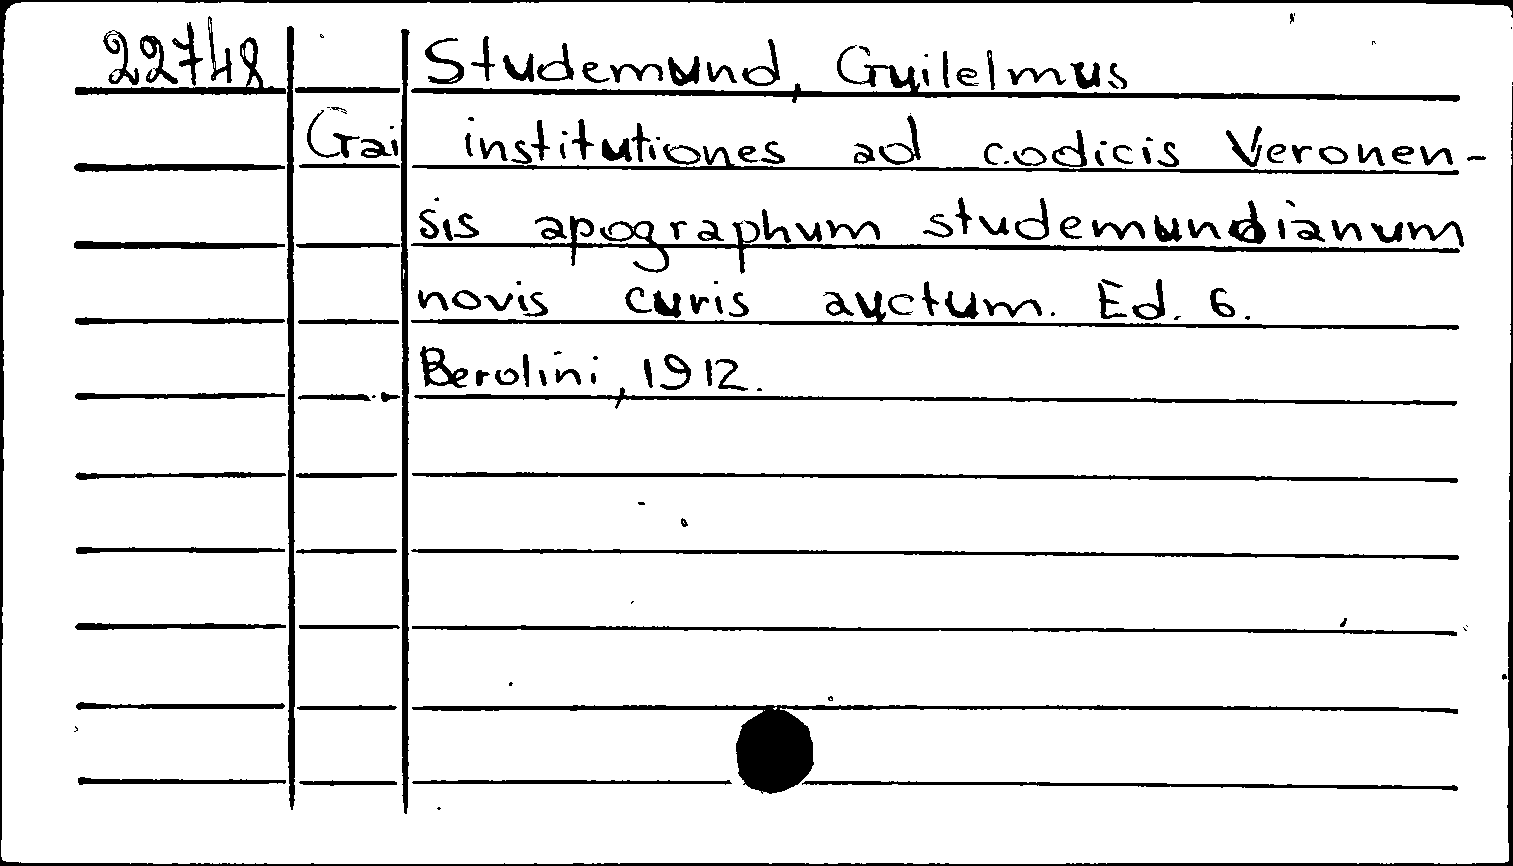 22748 Studemund, Guilelmus
Gai institutiones ad codicis Veronen-
sis apographum studemundianum
novis curis auctum. Ed. 6.
Berolini, 1912.